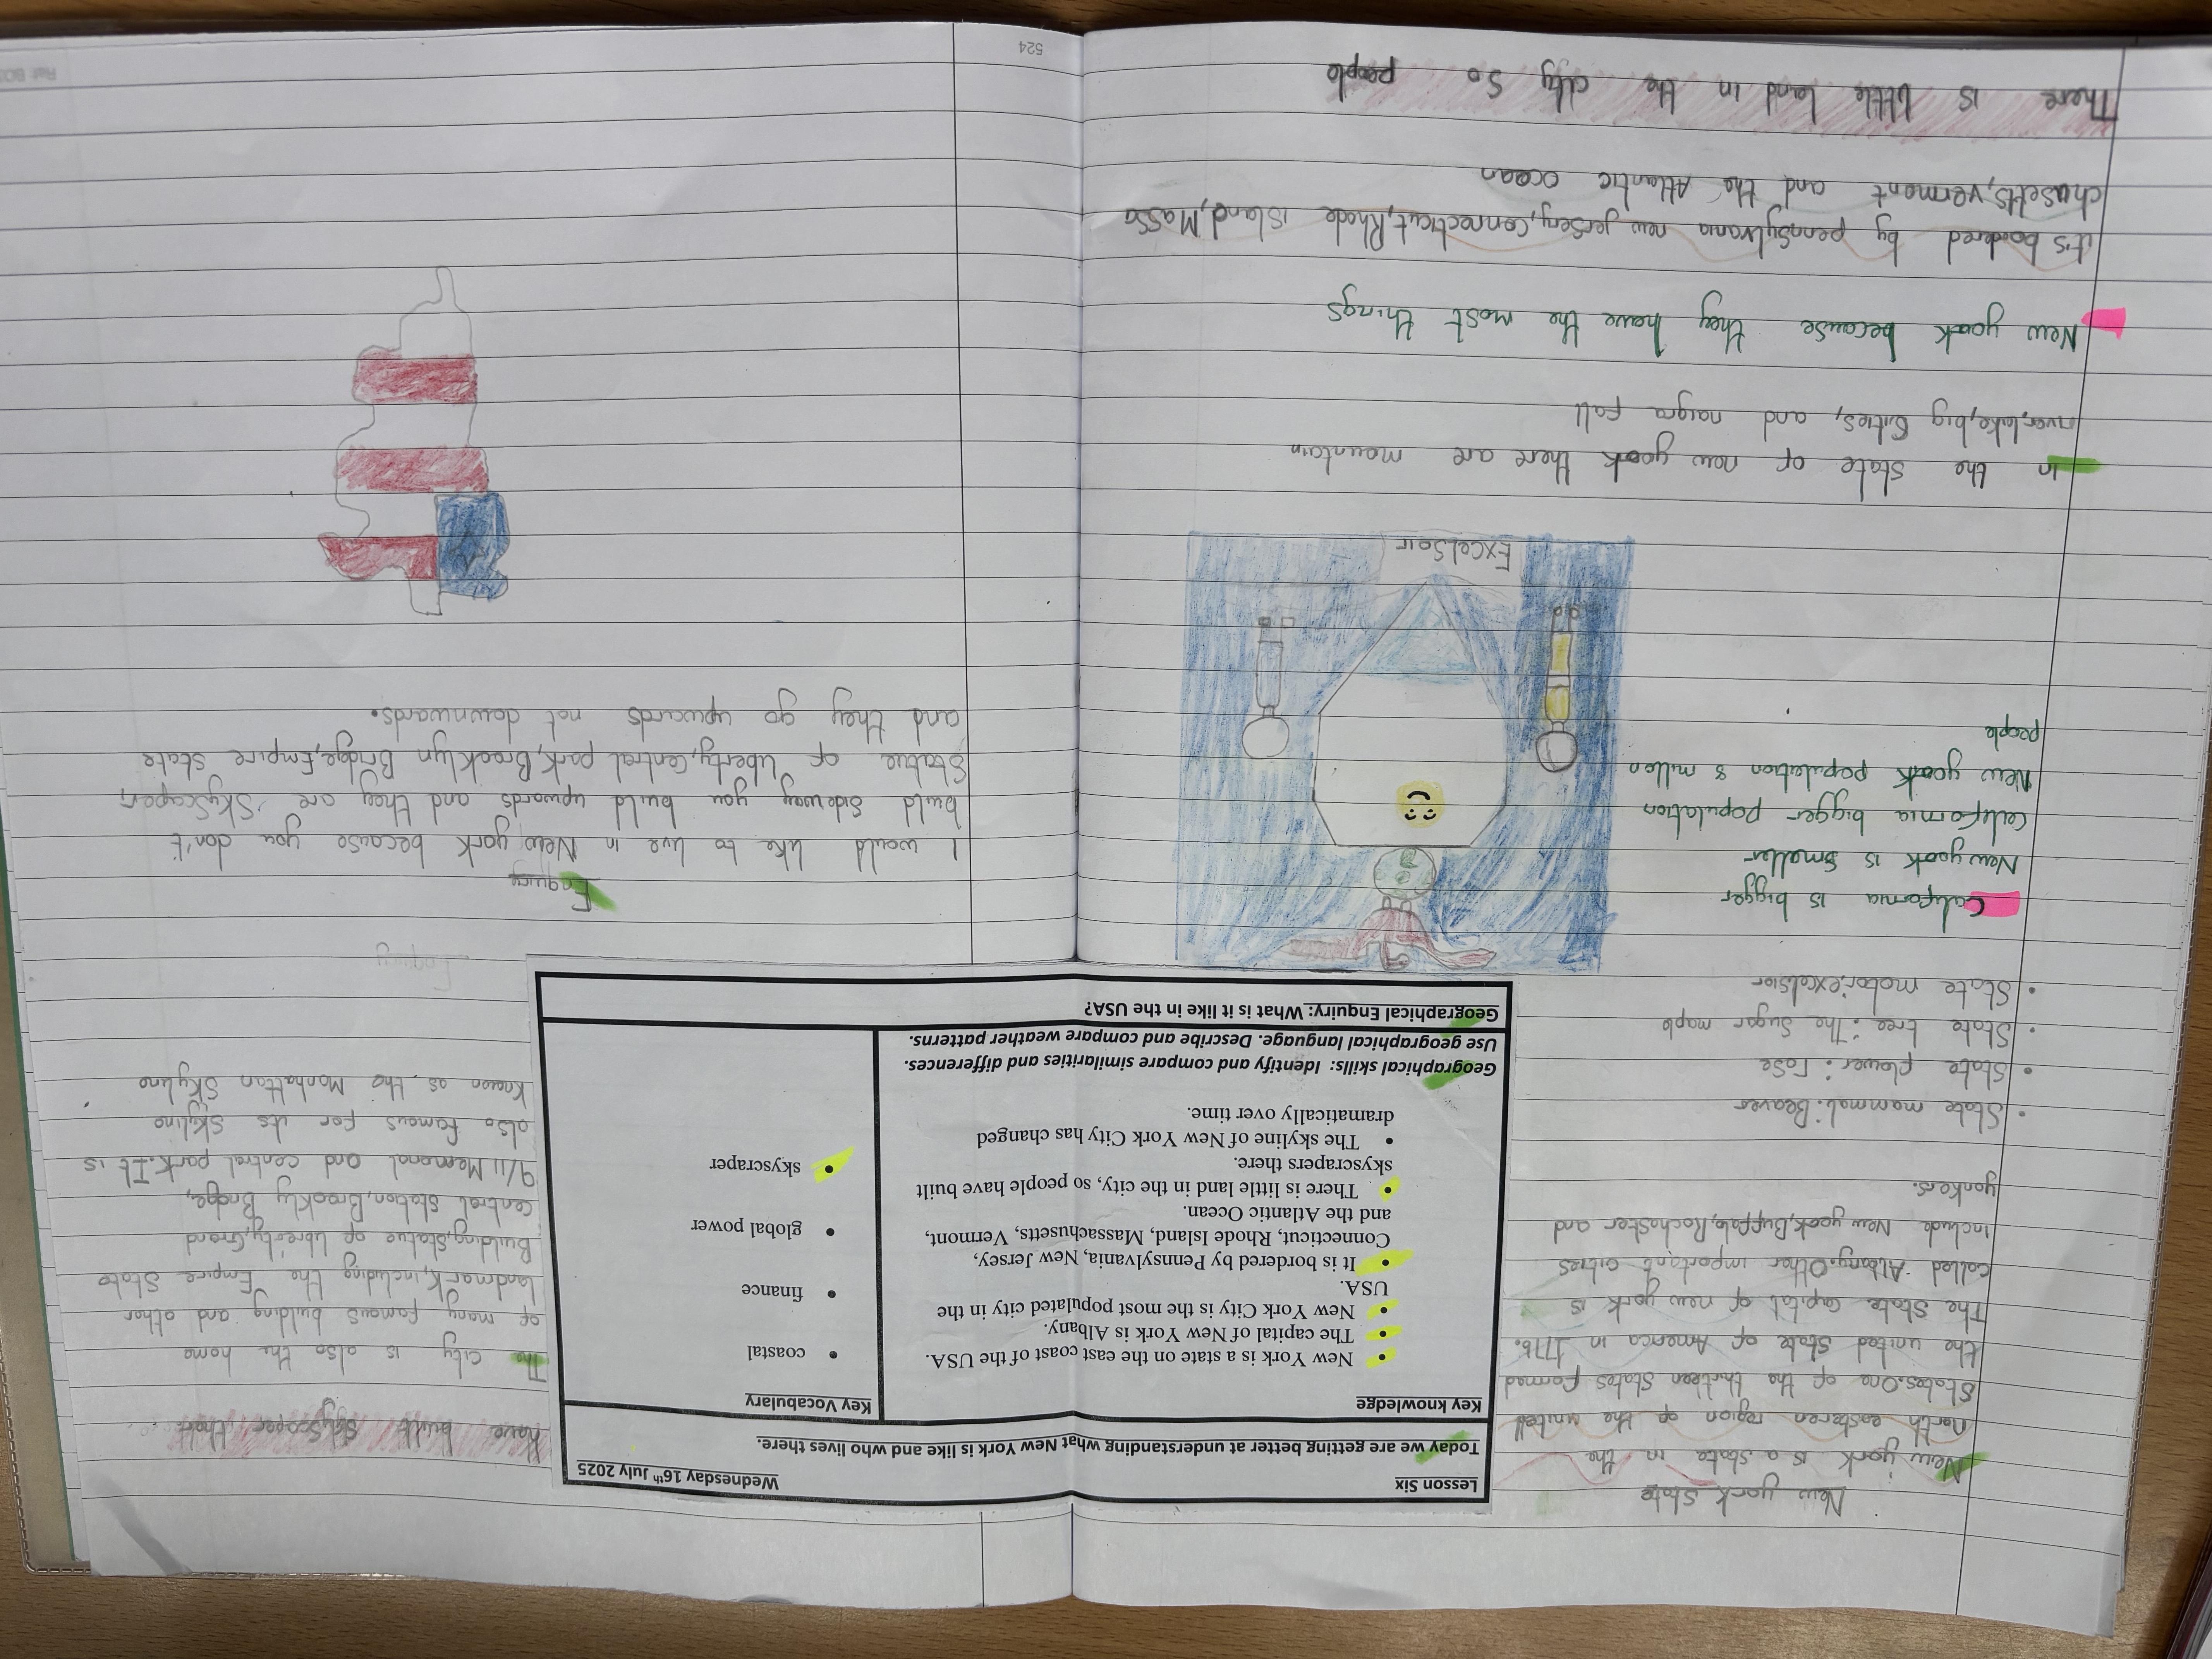 New york State
New york is a state in the
north easteren region of the united
States.One of the thirteen states formed
the united state of America in 1776.
The state capital of new york is
called Albany.Other important cities
include New yook,Buffalo,Rochester and
yonkers.
• State mammal:Beaver
• State flower: rose
• State tree: The Sugar maple
• State motor:excelsior
California is bigger
New yook is smaller
California bigger population
New yook population 8 millon
people
Excelsoir
In the state of new yook there are mountain
river,lake,big cities, and naigra fall
New yook because they have the most things
it's boodered by pennsylvania new jersery,connecticut,Rhode island,Massa
chusetts,vermont and the Atlantic ocean
There is little land in the city so people
Lesson Six
Wednesday 16th July 2025
Today we are getting better at understanding what New York is like and who lives there.
Key knowledge
• New York is a state on the east coast of the USA.
• The capital of New York is Albany.
• New York City is the most populated city in the
USA.
• It is bordered by Pennsylvania, New Jersey,
Connecticut, Rhode Island, Massachusetts, Vermont,
and the Atlantic Ocean.
• There is little land in the city, so people have built
skyscrapers there.
• The skyline of New York City has changed
dramatically over time.
Key Vocabulary
• coastal
• finance
• global power
• skyscraper
Geographical skills: Identify and compare similarities and differences.
Use geographical language. Describe and compare weather patterns.
Geographical Enquiry: What is it like in the USA?
have built skyscaper there
The city is also the home
of many famous building and other
landmark,including the Empire State
Building,Statue of libretty,Grand
central station,Brookly Bridge,
9/11 Memorial and central park.It is
also famous for its skyline
known as the Manhattan skyline
Enquiry
Enquiry
I would like to live in New york because you don't
build sideway you build upwards and they are skyscaper,
Statue of liberty,central park,Brooklyn Bridge,Empire state
and they go upwards not downwards.
524